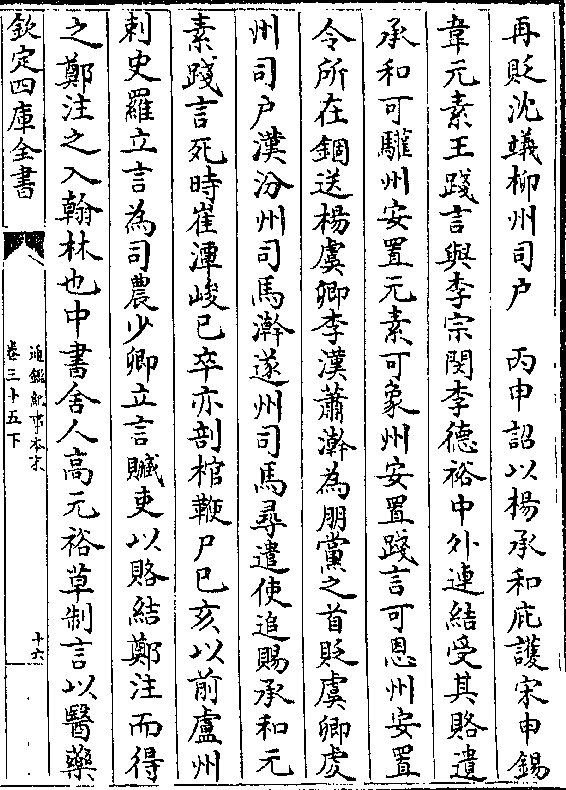 再貶沈𧑐柳州司户　丙申詔以楊承和庇護宋申錫
韋元素王踐言與李宗閔李德裕中外連結受其賂遺
承和可驩州安置元素可象州安置踐言可恩州安置
令所在錮送楊虞卿李漢蕭澣為朋黨之首貶虞卿虔
州司户漢汾州司馬澣遂州司馬尋遣使追賜承和元
素踐言死時崔潭峻已卒亦剖棺鞭尸已亥以前盧州
刺史羅立言為司農少卿立言贓吏以賂結鄭注而得
之鄭注之入翰林也中書舍人高元裕草制言以醫藥
欽定四庫全書
通鑑紀事本末
卷三十五下
十六